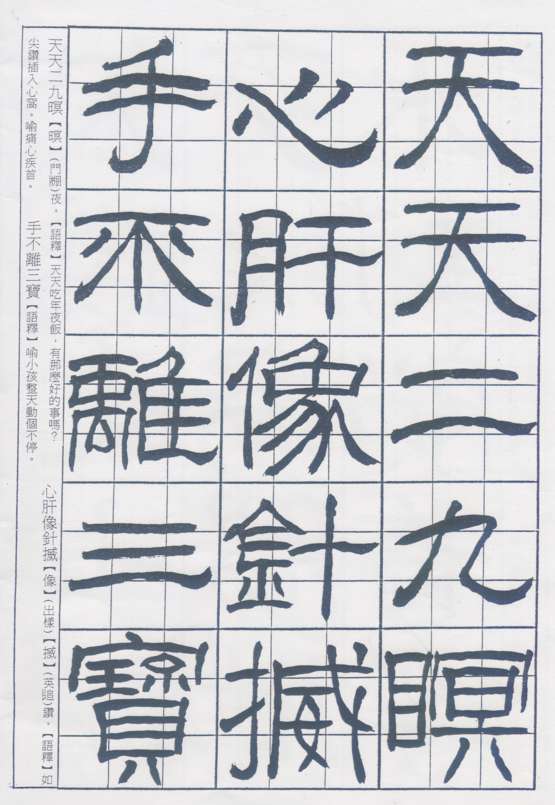 天天二九暝
心肝像針揻
手不離三寶
天天二九暝【暝】(門棚)夜。【語釋】天天吃年夜飯，有那麼好的事嗎？ 心肝像針揻【像】(出樣)【揻】(英追)鑽。【語釋】如
尖鑽插入心窩。喻痛心疾首。 手不離三寶【語釋】喻小孩整天動個不停。